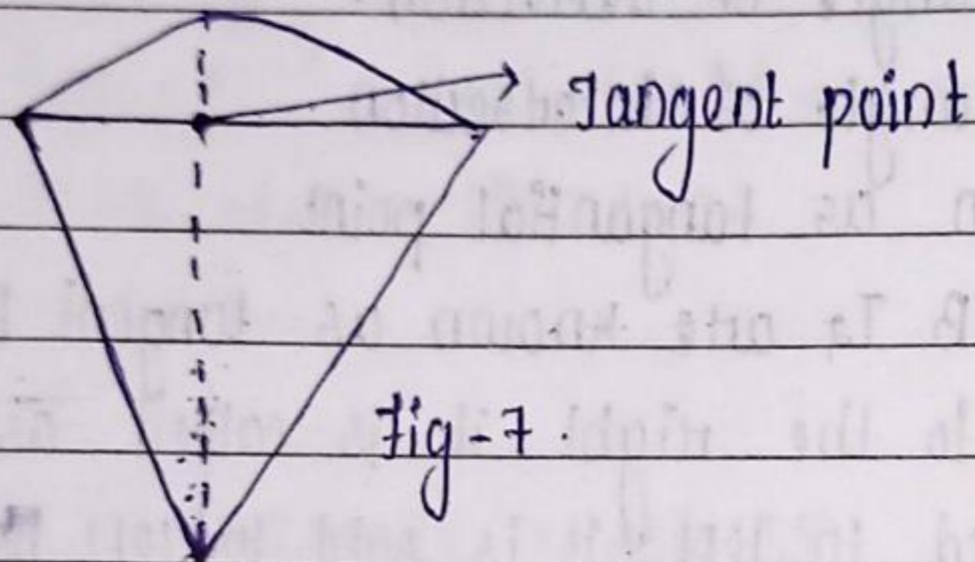 Tangent point
Fig-7.